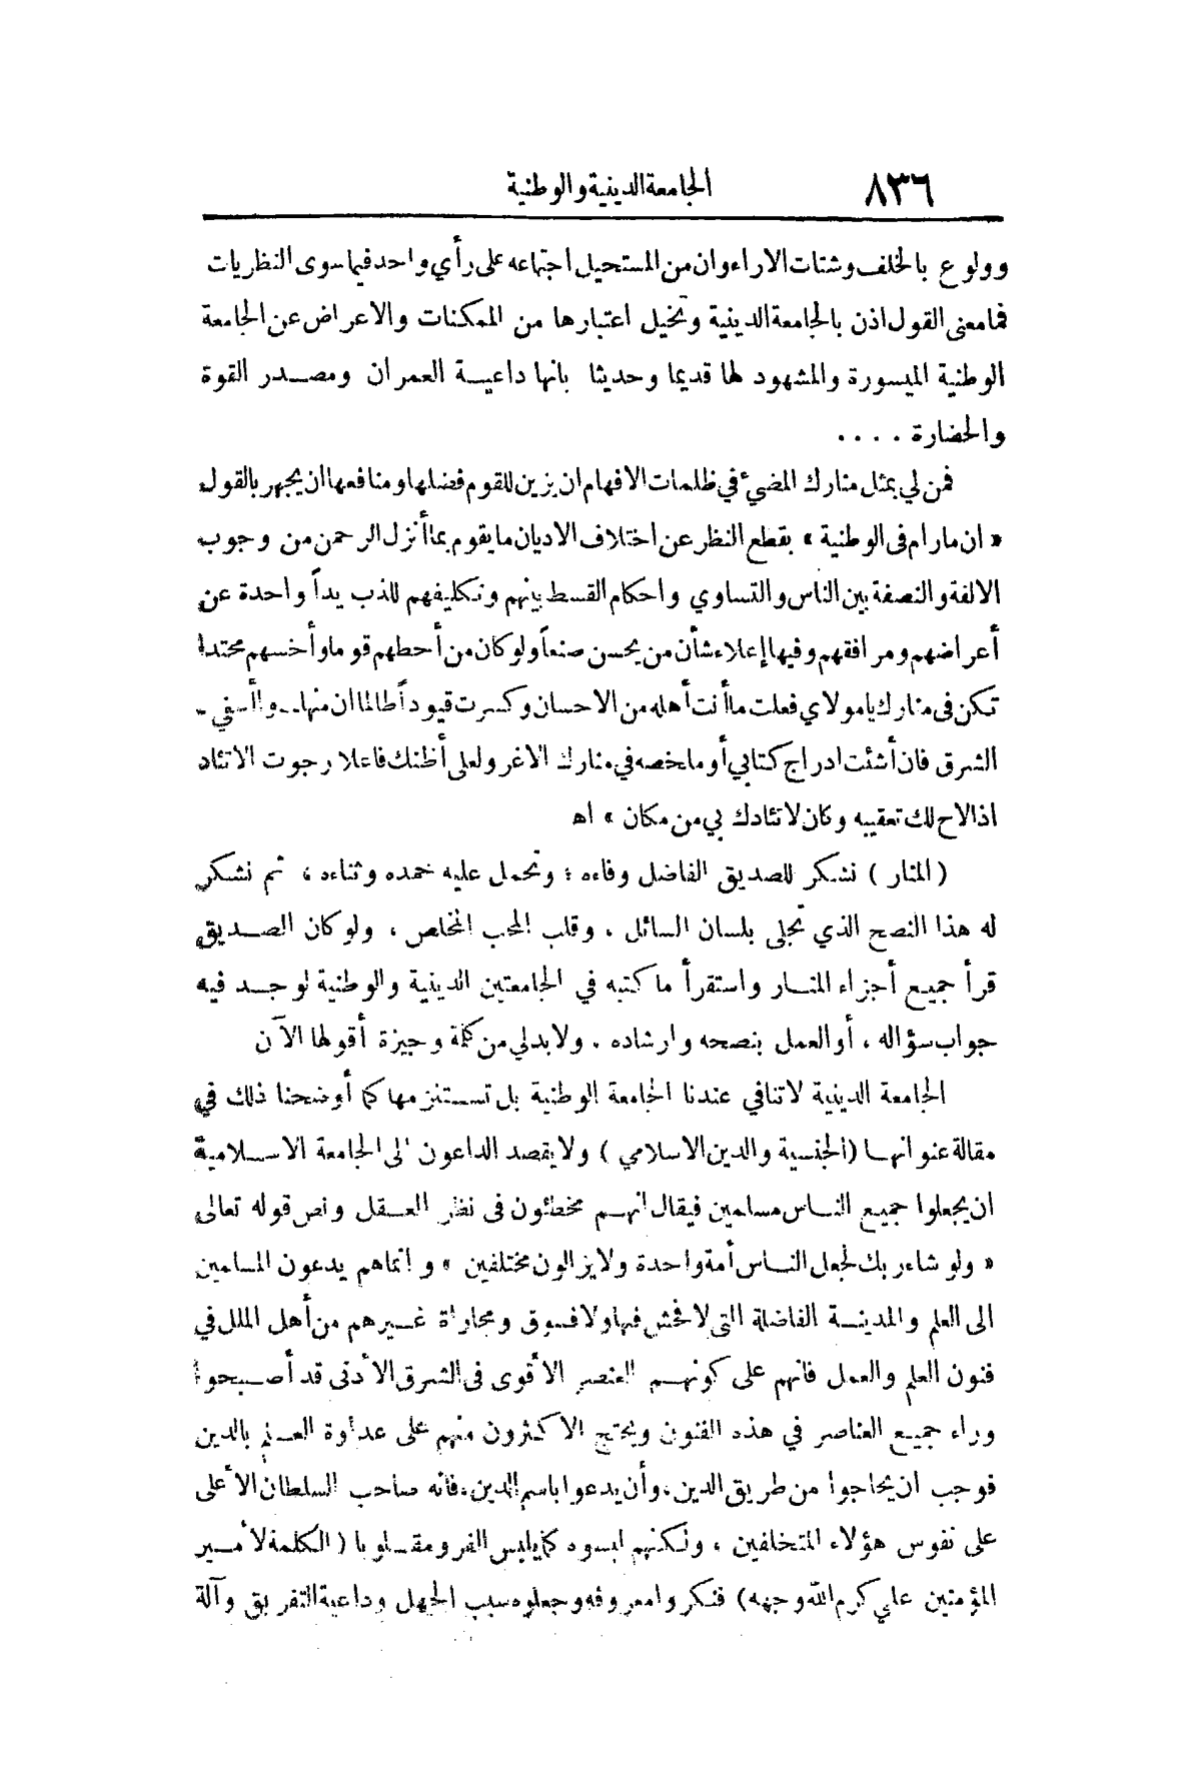 ٨٣٦ الجامعة الدينية والوطنية
وولوع بالخلف وشتات الاراء وان من المستحيل اجتماعه على رأي واحد فيما سوى النظريات
فما معنى القول اذن بالجامعة الدينية وتخيل اعتبارها من الممكنات والاعراض عن الجامعة
الوطنية الميسورة والمشهود لها قديما وحديثا بانها داعية العمران ومصدر القوة
والحضارة . . . .
فمن لي بمثل منارك المضيء في ظلمات الافهام ان يزين للقوم فضلها ومنافعها ان يجهر بالقول
« ان مارام فى الوطنية » بقطع النظر عن اختلاف الاديان ما يقوم بما أنزل الرحمن من وجوب
الالفة والنصفة بين الناس والتساوي واحكام القسط بينهم وتكليفهم للذب يداً واحدة عن
أعراضهم ومرافقهم وفيها إعلاء شأن من يحسن صنعاً ولو كان من أحطهم قوما وأخسهم محتدا
تكن فى منارك يا مولاي فعلت ما أنت أهله من الاحسان وكسرت قيوداً طالما ان منها ـ وا أسفي ـ
الشرق فان أشئت ادراج كتابي أو ملخصه في منارك الاغر ولعلى أظنك فاعلا رجوت الاتئاد
اذا لاح لك تعقيبه وكان لاتئادك بي من مكان » اه
( المنار ) نشكر للصديق الفاضل وفاءه ؛ ونحمل عليه حمده وثناءه ، ثم نشكر
له هذا النصح الذي تجلى بلسان السائل . وقلب المحب المخلص ، ولو كان الصديق
قرأ جميع أجزاء المنار واستقرأ ما كتبه في الجامعتين الدينية والوطنية لوجد فيه
جواب سؤاله ، أو العمل بنصحه وارشاده . ولا بد لي من كلمة وجيزة أقولها الآن
الجامعة الدينية لا تنافي عندنا الجامعة الوطنية بل تستلزمها كما أوضحنا ذلك في
مقالة عنوانها (الجنسية والدين الاسلامي ) ولا يقصد الداعون الى الجامعة الاسلامية
ان يجعلوا جميع الناس مسلمين فيقال انهم مخطئون فى نظر العقل ونص قوله تعالى
« ولو شاء ربك لجعل الناس أمة واحدة ولا يزالون مختلفين » وانما هم يدعون المسلمين
الى العلم والمدينة الفاضلة التى لا فحش فيها ولا فسوق ومجاراة غيرهم من أهل الملل في
فنون العلم والعمل فانهم على كونهم العنصر الأقوى فى الشرق الأدنى قد أصبحوا
وراء جميع العناصر في هذه الفنون ويحتج الاكثرون منهم على عداوة العلم بالدين
فوجب ان يحاجوا من طريق الدين، وأن يدعوا باسم الدين، فانه صاحب السلطان الأعلى
على نفوس هؤلاء المتخلفين ، ولكنهم لبسوه كما يلبس الفرو مقلوبا ( الكلمة لأمير
المؤمنين علي كرم الله وجهه) فنكروا معروفه وجعلوه سبب الجهل وداعية التفريق وآلة